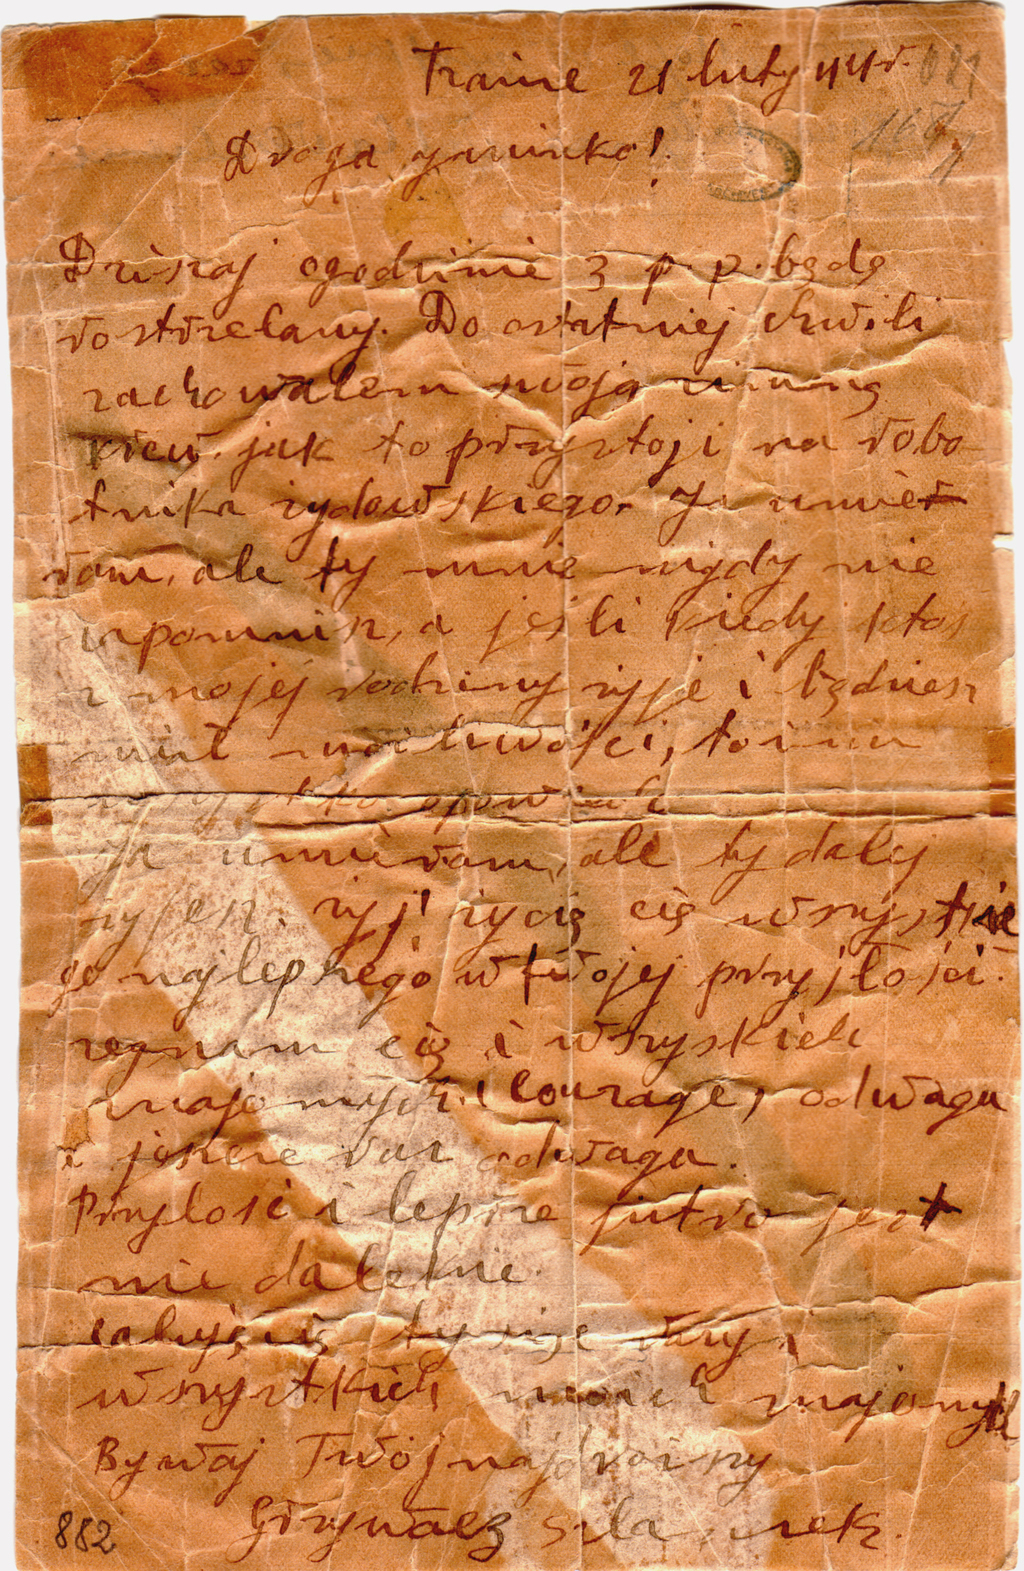 Fraine 21 luty 44r.
Droga Janinko!
Dzisaj ogodzinie 3 p.p. będę
rostrzelany. Do ostatniej chwili
zachowałem swoją zimną
krew, jak to przystoji na robo-
tnika zydowskiego. Ja umie
ram, ale ty mnie nigdy nie
zapomnisz, a jeśli kiedy ktoś
z mojej rodziny zyje i będziesz
miał możliwości, to im
wszystko opowiedz
Ja umieram, ale ty dalej
zyjesz. zyj! zyczę cię wszystkie
go najlepszego w twojej przyjłości.
zegnam cię i wszyskich
znajomych. Courage, odwaga
i jeszcze raz odwaga.
Przyłość i lepsze jutro jest
nie dalekie.
całuję cię tysiąc razy i
wszystkich moich znajomych
Bywaj Twój najdroiszy
Grzywacz Szlamek.
882